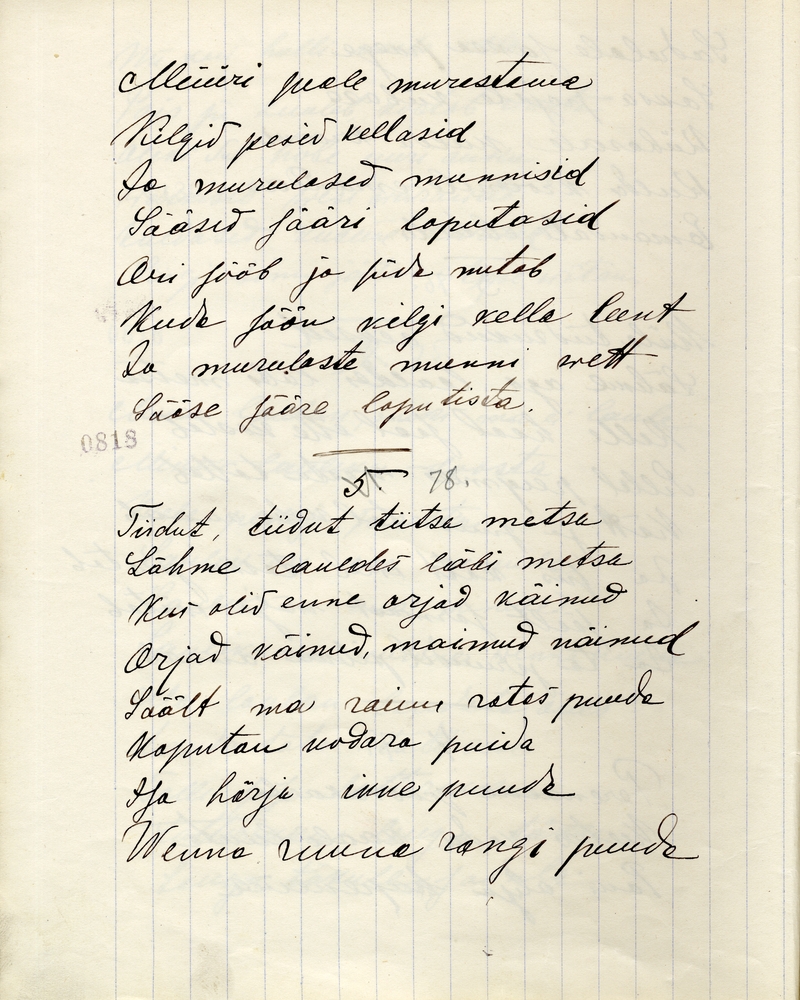 Müüri peale murestama
Kilgid pesid kellasid
Ja murulased munnisid
Sääsid sääri loputasid
Ori sööb ja süda mutab
Kuda söön kilgi kella leent
Ja murulaste munni wett
Sääse sääre loputista.
0818
5. 78.
Tiidut, tiidut tiitsa metsa
Lähme lauldes läbi metsa
Kus olid enne orjad käinud
Orjad käinud, maimud näinud
Säält ma raiun ratas puuda
Koputan kodara puida
Isa härja ikke puuda
Wenna ruuna rangi puuda